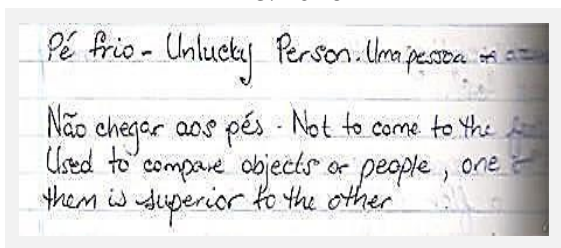 Pé frio - Unlucky Person. Uma pessoa
Não chegar aos pés - Not to come to the
Used to compare objects or people, one
them is superior to the other